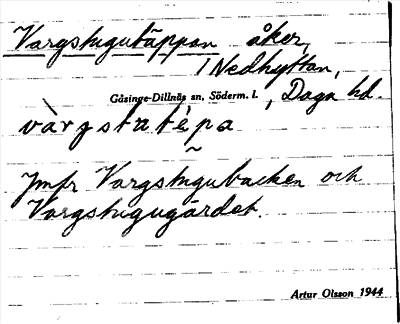 Vargstugutäppan åker,
/ Nedhyttan,
Gåsinge-Dillnäs sn, Söderm. l. , Daga hd.
vàrgstatépa
Jmfr Vargstugubacken och
Vargstugugärdet.
Artur Olsson 1944